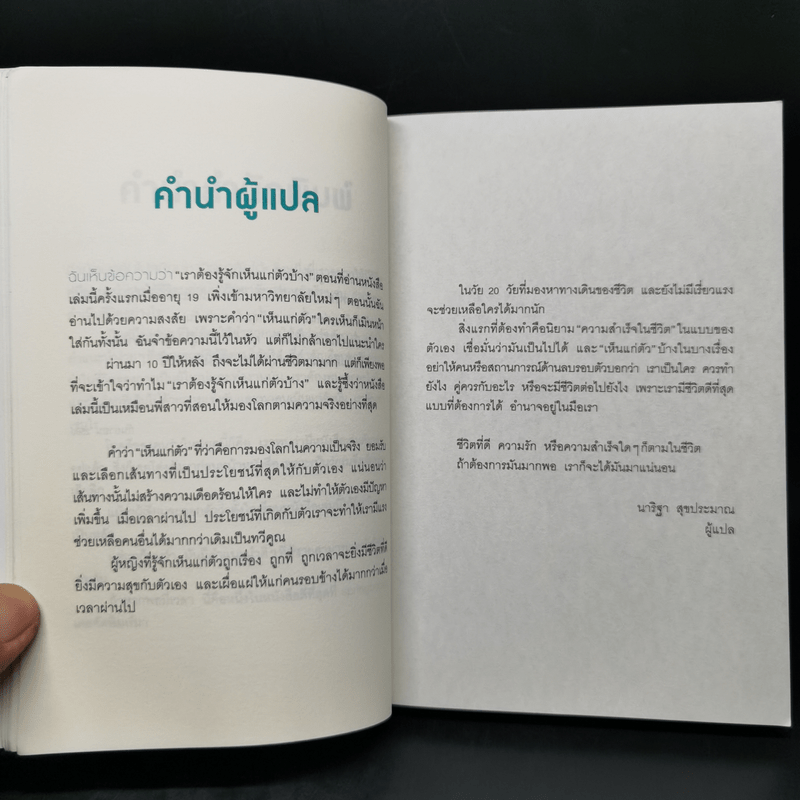 คำนำผู้แปล
ฉันเห็นข้อความว่า "เราต้องรู้จักเห็นแก่ตัวบ้าง" ตอนที่อ่านหนังสือ
เล่มนี้ครั้งแรกเมื่ออายุ 19 เพิ่งเข้ามหาวิทยาลัยใหม่ๆ ตอนนั้นฉัน
อ่านไปด้วยความสงสัย เพราะคำว่า "เห็นแก่ตัว" ใครเห็นก็เมินหน้า
ใส่กันทั้งนั้น ฉันจำข้อความนี้ไว้ในหัว แต่ก็ไม่กล้าเอาไปแนะนำใคร
ผ่านมา 10 ปีให้หลัง ถึงจะไม่ได้ผ่านชีวิตมามาก แต่ก็เพียงพอ
ที่จะเข้าใจว่าทำไม "เราต้องรู้จักเห็นแก่ตัวบ้าง" และรู้ซึ้งว่าหนังสือ
เล่มนี้เป็นเหมือนพี่สาวที่สอนให้มองโลกตามความจริงอย่างที่สุด
คำว่า "เห็นแก่ตัว" ที่ว่าคือการมองโลกในความเป็นจริง ยอมรับ
และเลือกเส้นทางที่เป็นประโยชน์ที่สุดให้กับตัวเอง แน่นอนว่า
เส้นทางนั้นไม่สร้างความเดือดร้อนให้ใคร และไม่ทำให้ตัวเองมีปัญหา
เพิ่มขึ้น เมื่อเวลาผ่านไป ประโยชน์ที่เกิดกับตัวเราจะทำให้เรามีแรง
ช่วยเหลือคนอื่นได้มากกว่าเดิมเป็นทวีคูณ
ผู้หญิงที่รู้จักเห็นแก่ตัวถูกเรื่อง ถูกที่ ถูกเวลาจะยิ่งมีชีวิตที่ดี
ยิ่งมีความสุขกับตัวเอง และเผื่อแผ่ให้แก่คนรอบข้างได้มากกว่าเมื่อ
เวลาผ่านไป
ในวัย 20 วัยที่มองหาทางเดินของชีวิต และยังไม่มีเรี่ยวแรง
จะช่วยเหลือใครได้มากนัก
สิ่งแรกที่ต้องทำคือนิยาม "ความสำเร็จในชีวิต" ในแบบของ
ตัวเอง เชื่อมั่นว่ามันเป็นไปได้ และ "เห็นแก่ตัว" บ้างในบางเรื่อง
อย่าให้คนหรือสถานการณ์ด้านลบรอบตัวบอกว่า เราเป็นใคร ควรทำ
ยังไง คู่ควรกับอะไร หรือจะมีชีวิตต่อไปยังไง เพราะเรามีชีวิตดีที่สุด
แบบที่ต้องการได้ อำนาจอยู่ในมือเรา
ชีวิตที่ดี ความรัก หรือความสำเร็จใดๆ ก็ตามในชีวิต
ถ้าต้องการมันมากพอ เราก็จะได้มันมาแน่นอน
นาริฐา สุขประมาณ
ผู้แปล